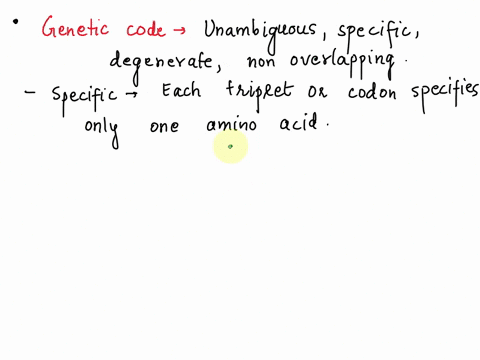 • Genetic code → Unambiguous, specific,
degenerate, non overlapping.
- Specific → Each triplet or codon specifies
only one amino acid.